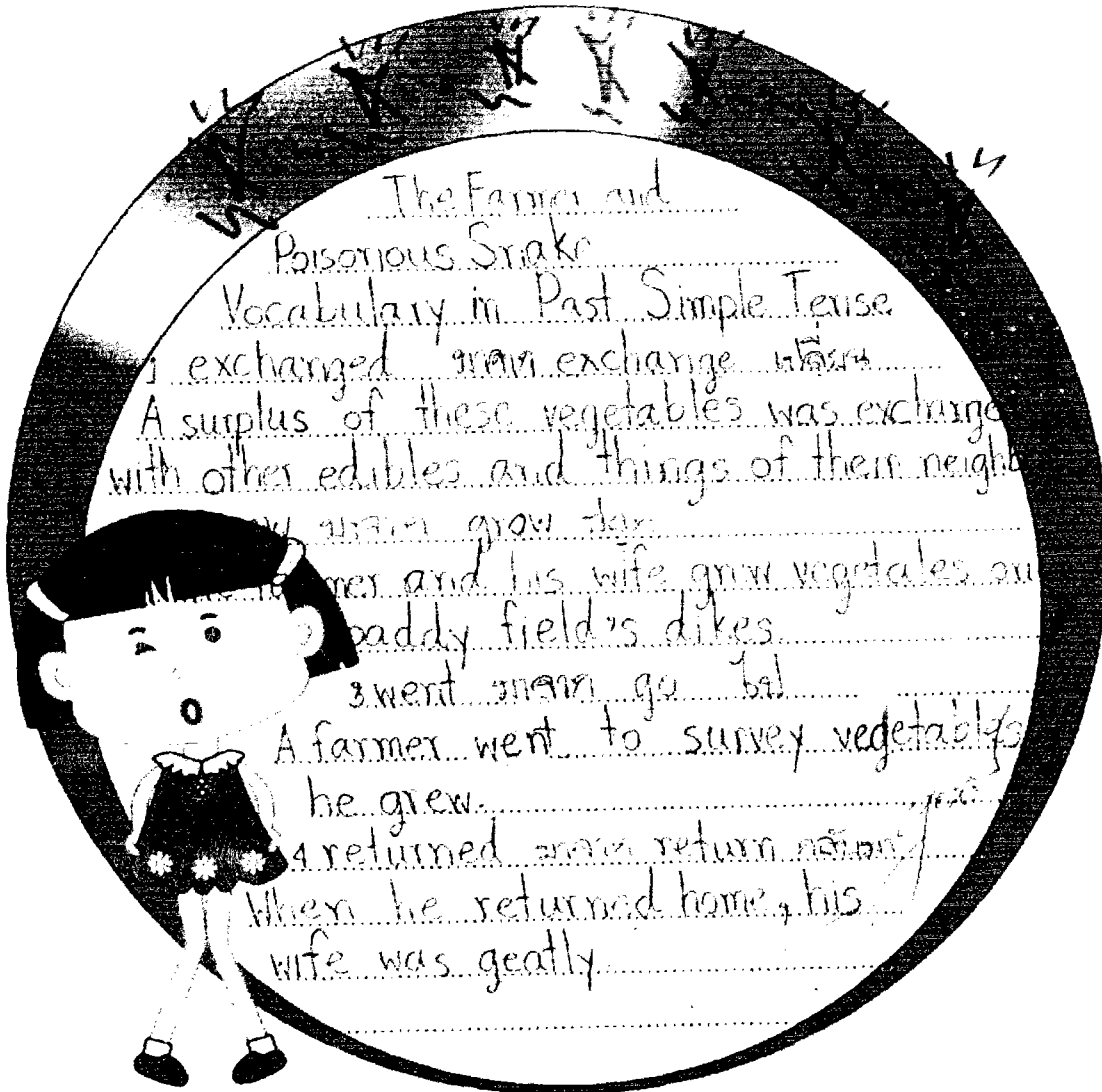 The Farmer and
Poisonous Snake
Vocabulary in Past Simple Tense
1 exchanged มาจาก exchange เปลี่ยน
A surplus of these vegetables was exchange
with other edibles and things of their neighb
มาจาก grow ปลูก
mer and his wife grew vegetales on
paddy field's dikes
3 went มาจาก go ไป
A farmer went to survey vegetables
he grew.
4 returned มาจาก return กลับมา
When he returned home, his
wife was geatly